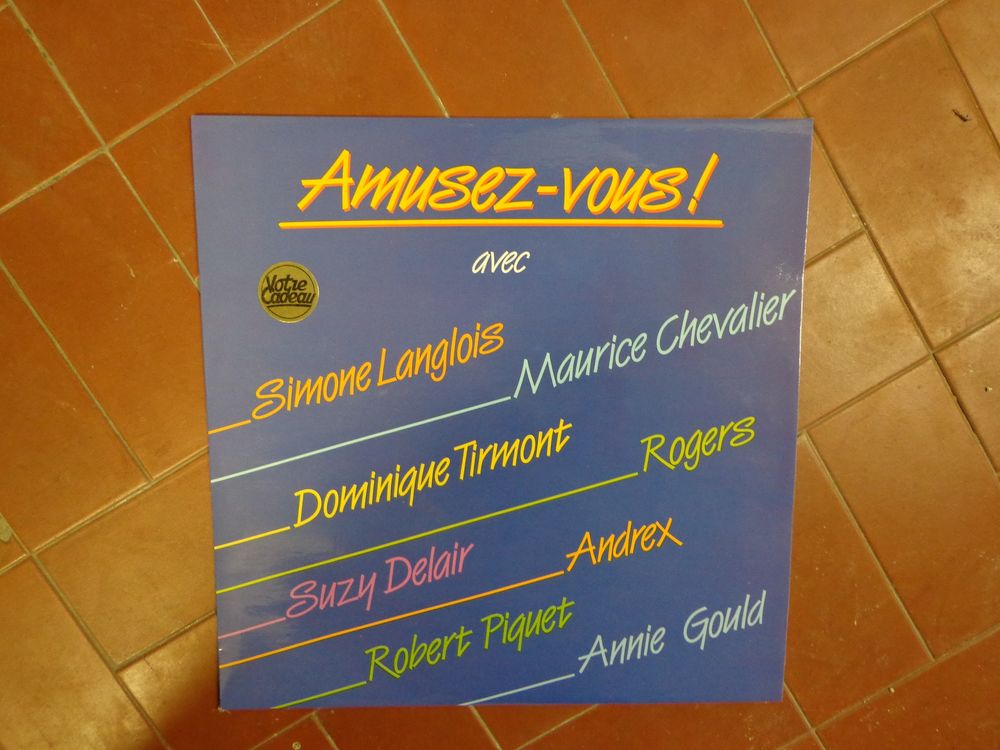 Amusez-vous!
avec
Votre
Cadeau
Simone Langlois
Maurice Chevalier
Dominique Tirmont
Rogers
Suzy Delair
Andrex
Robert Piquet
Annie Gould